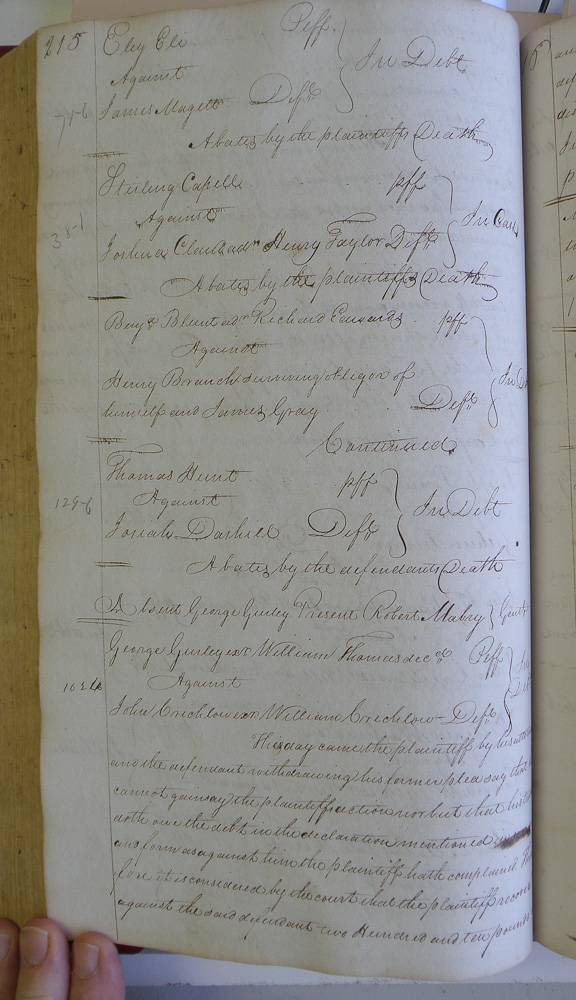 215 Eley Ele Peff
Against In Debt
James Magett Deft
Abates by the plaintiffs Death
Sterling Capell pff
Against In Case
Joshua Claud adr Henry Taylor Deft
Abates by the plaintiffs Death
Benja Blunt adr Richard Edwards pff
Against
Henry Branch surviving obligor of In
himself and James Gray Deft
Continued
Thomas Hunt pff
129-6 Against In Debt
Josiah Dashiell Deft
Abates by the defendants Death
Absent George Gurley Present Robert Mabry Gent
George Gurley exr William Thomas decd Peff
Against
John Crichlow exr William Crichlow Deft
This day came the plaintiff by his
and the defendant withdrawing his former plea say that
cannot gainsay the plaintiff action nor but that his
doth owe the debt in the declaration mentioned
and form as against him the plaintiff hath complained
fore it is considered by the court that the plaintiff recover
against the said defendant two Hundred and ten pounds